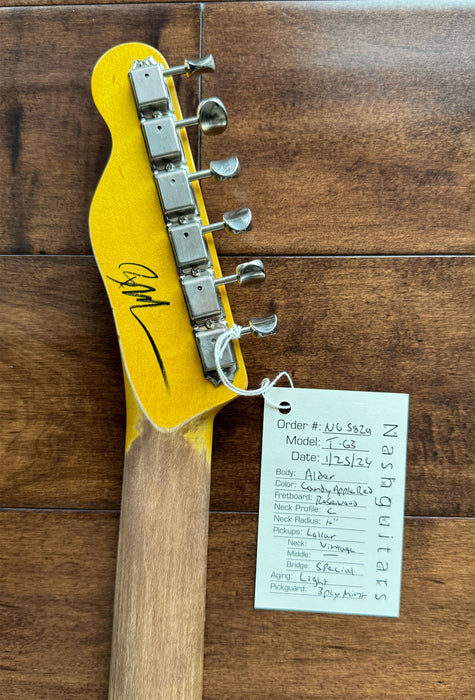 Nashguitars
Order #: NG 5829
Model: T-63
Date: 1/25/24
Body: Alder
Color: Candy Apple Red
Fretboard: Rosewood
Neck Profile: C
Neck Radius: 10"
Pickups: Lollar
Neck: Vintage
Middle: —
Bridge: Special
Aging: Light
Pickguard: 3ply mint